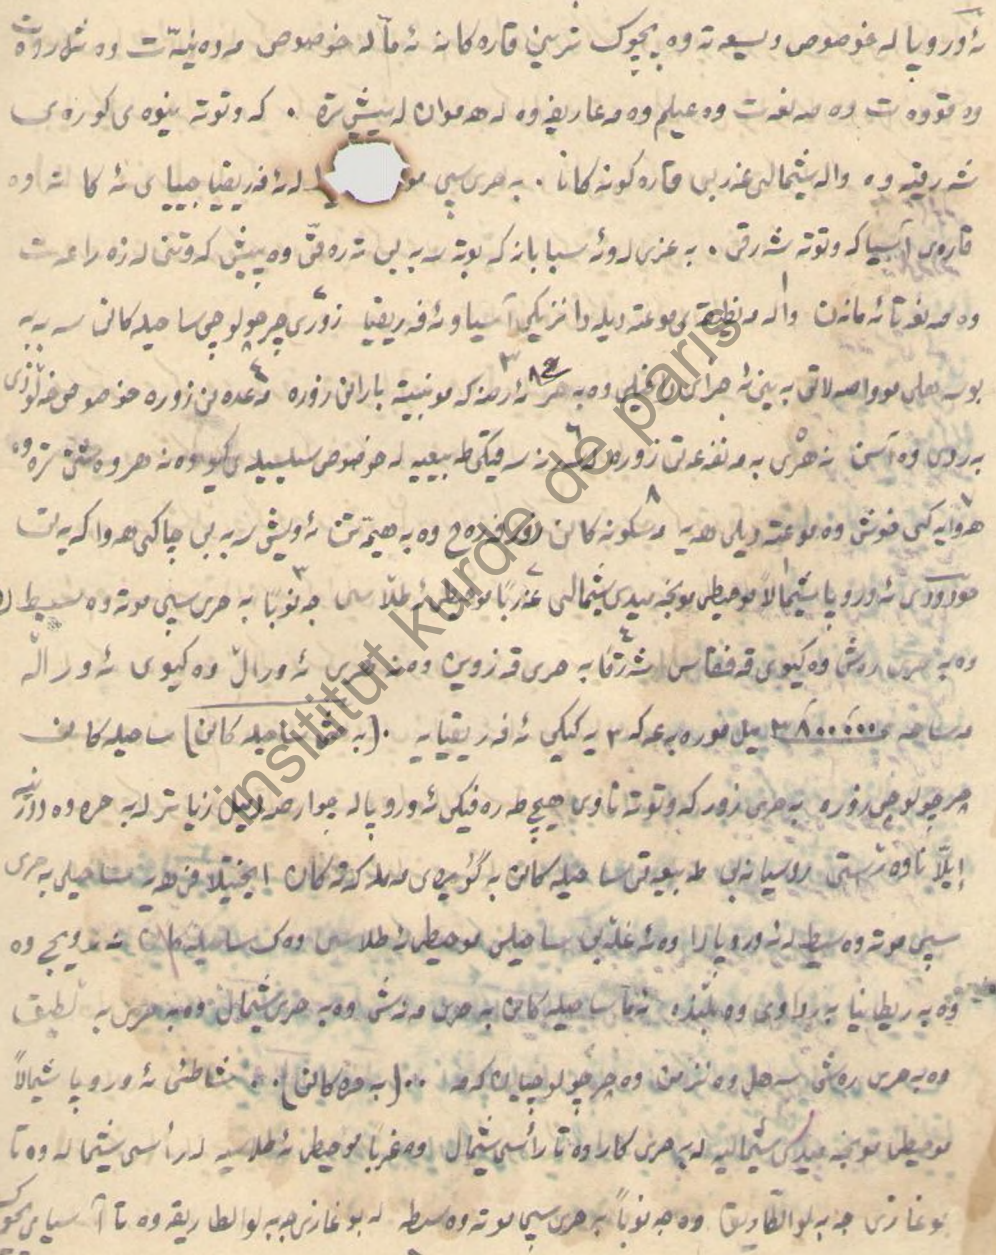 ئەوروپا لە خوصوص وسیعە تەوە پچوک ترین قارەکانە ئەمّا لە خوصوص مەدەنیەت وە ثەروەت
وە قووەت وە صەنعەت وە عیلم وە مەعاریفەوە لە هەموان لە پیش ترە . کەوتوتە نیوەی کورەی
شەرقیە وە والە شیمالی غەربی قارە کونەکانا . بەحری سپی لە ئەفریقیا جییای ئەکاتەوە
قارەی آسیا کەوتوتە شەرقی . بەعزی لەو ئەسبابانە کە بوتە سەبەبی تەرەقی وە پیش کەوتنی لە زەراعەت
وە صەنعەتا ئەمانەن والە مەنطەقەی موعتەدیلەدا نزیکی آسیا و ئەفریقیا زۆری چرچولوچی ساحیلەکانی سەبەبە
بو سەهلی موواصەلاتی بەینی وە بە ئەرضەکە مونبیتە بارانی زورە مەعدەنی زورە خوصوص خەلوزی
بەردی وە آسن نەهری بە مەنفەعەتی زورە طەبیعیە لە خوصوص سیلسیلەی کیوەوە نەهرەوە
هەوایەکی خوش وە موعتەدیلی هەیە مەسکونەکانی وە بە هیمەتن ئەویش سەبەبی چاکی هەواکەیەتی
حودودی ئەوروپا شیمالاً موحیطی مونجەمیدی شیمالی غەرباً موحیطی ئەطلاسی جەنوباً بەحری سپی موتەوەسیط
وە بەحری رەش وە کیوی قەفقاس شەرقاً بەحری قەزوین وە نەهری ئەورال وە کیوی ئەورالە
مەساحەی ٣٨٠٠٠٠٠ میل مورەبەعە کە ٣ یەکیکی ئەفریقیایە . (بە ساحیلەکانی) ساحیلەکانی
چرچولوچی زورە بەحری زور کەوتوتە ناوی هیچ طەرەفیکی ئەوروپا لە چوارصەد میل زیاتر لە بەحرەوە دور نیە
إیلّا ناوەڕاستی روسیا نەبی طەبیعەتی ساحیلەکانی بە گویرەی مەملەکەتەکان ایختیلافی هەیە ساحیلی بەحری
سپی موتەوەسیط لە ئەوروپادا وە ئەغلەبی ساحیلی موحیطی ئەطلاسی وەک ساحیلەکانی نەرویج وە
وە بەریطانیا بەرداوی وە بلندە ئەمّا ساحیلەکانی بەحری مەنش وە بەحری شیمال وە بەحری بەلطیق
وە بەحری رەش سەهل وە نزمن وە چرچولوچیان کەمە .. (بەحرەکانی) .. شاطئی ئەوروپا شیمالاً
موحیطی مونجەمیدی شیمالیە لە بەحری کاراوە تا رأسی شیمال وە غرباً موحیطی ئەطلاسیە لە رأسی شیمالەوە تا
بوغازی جەبەلوالطاریق وە جەنوباً بەحری سپی موتەوەسیطە لە بوغازی جەبەلوالطاریقەوە تا آسیای پچوک
institut kurde de paris